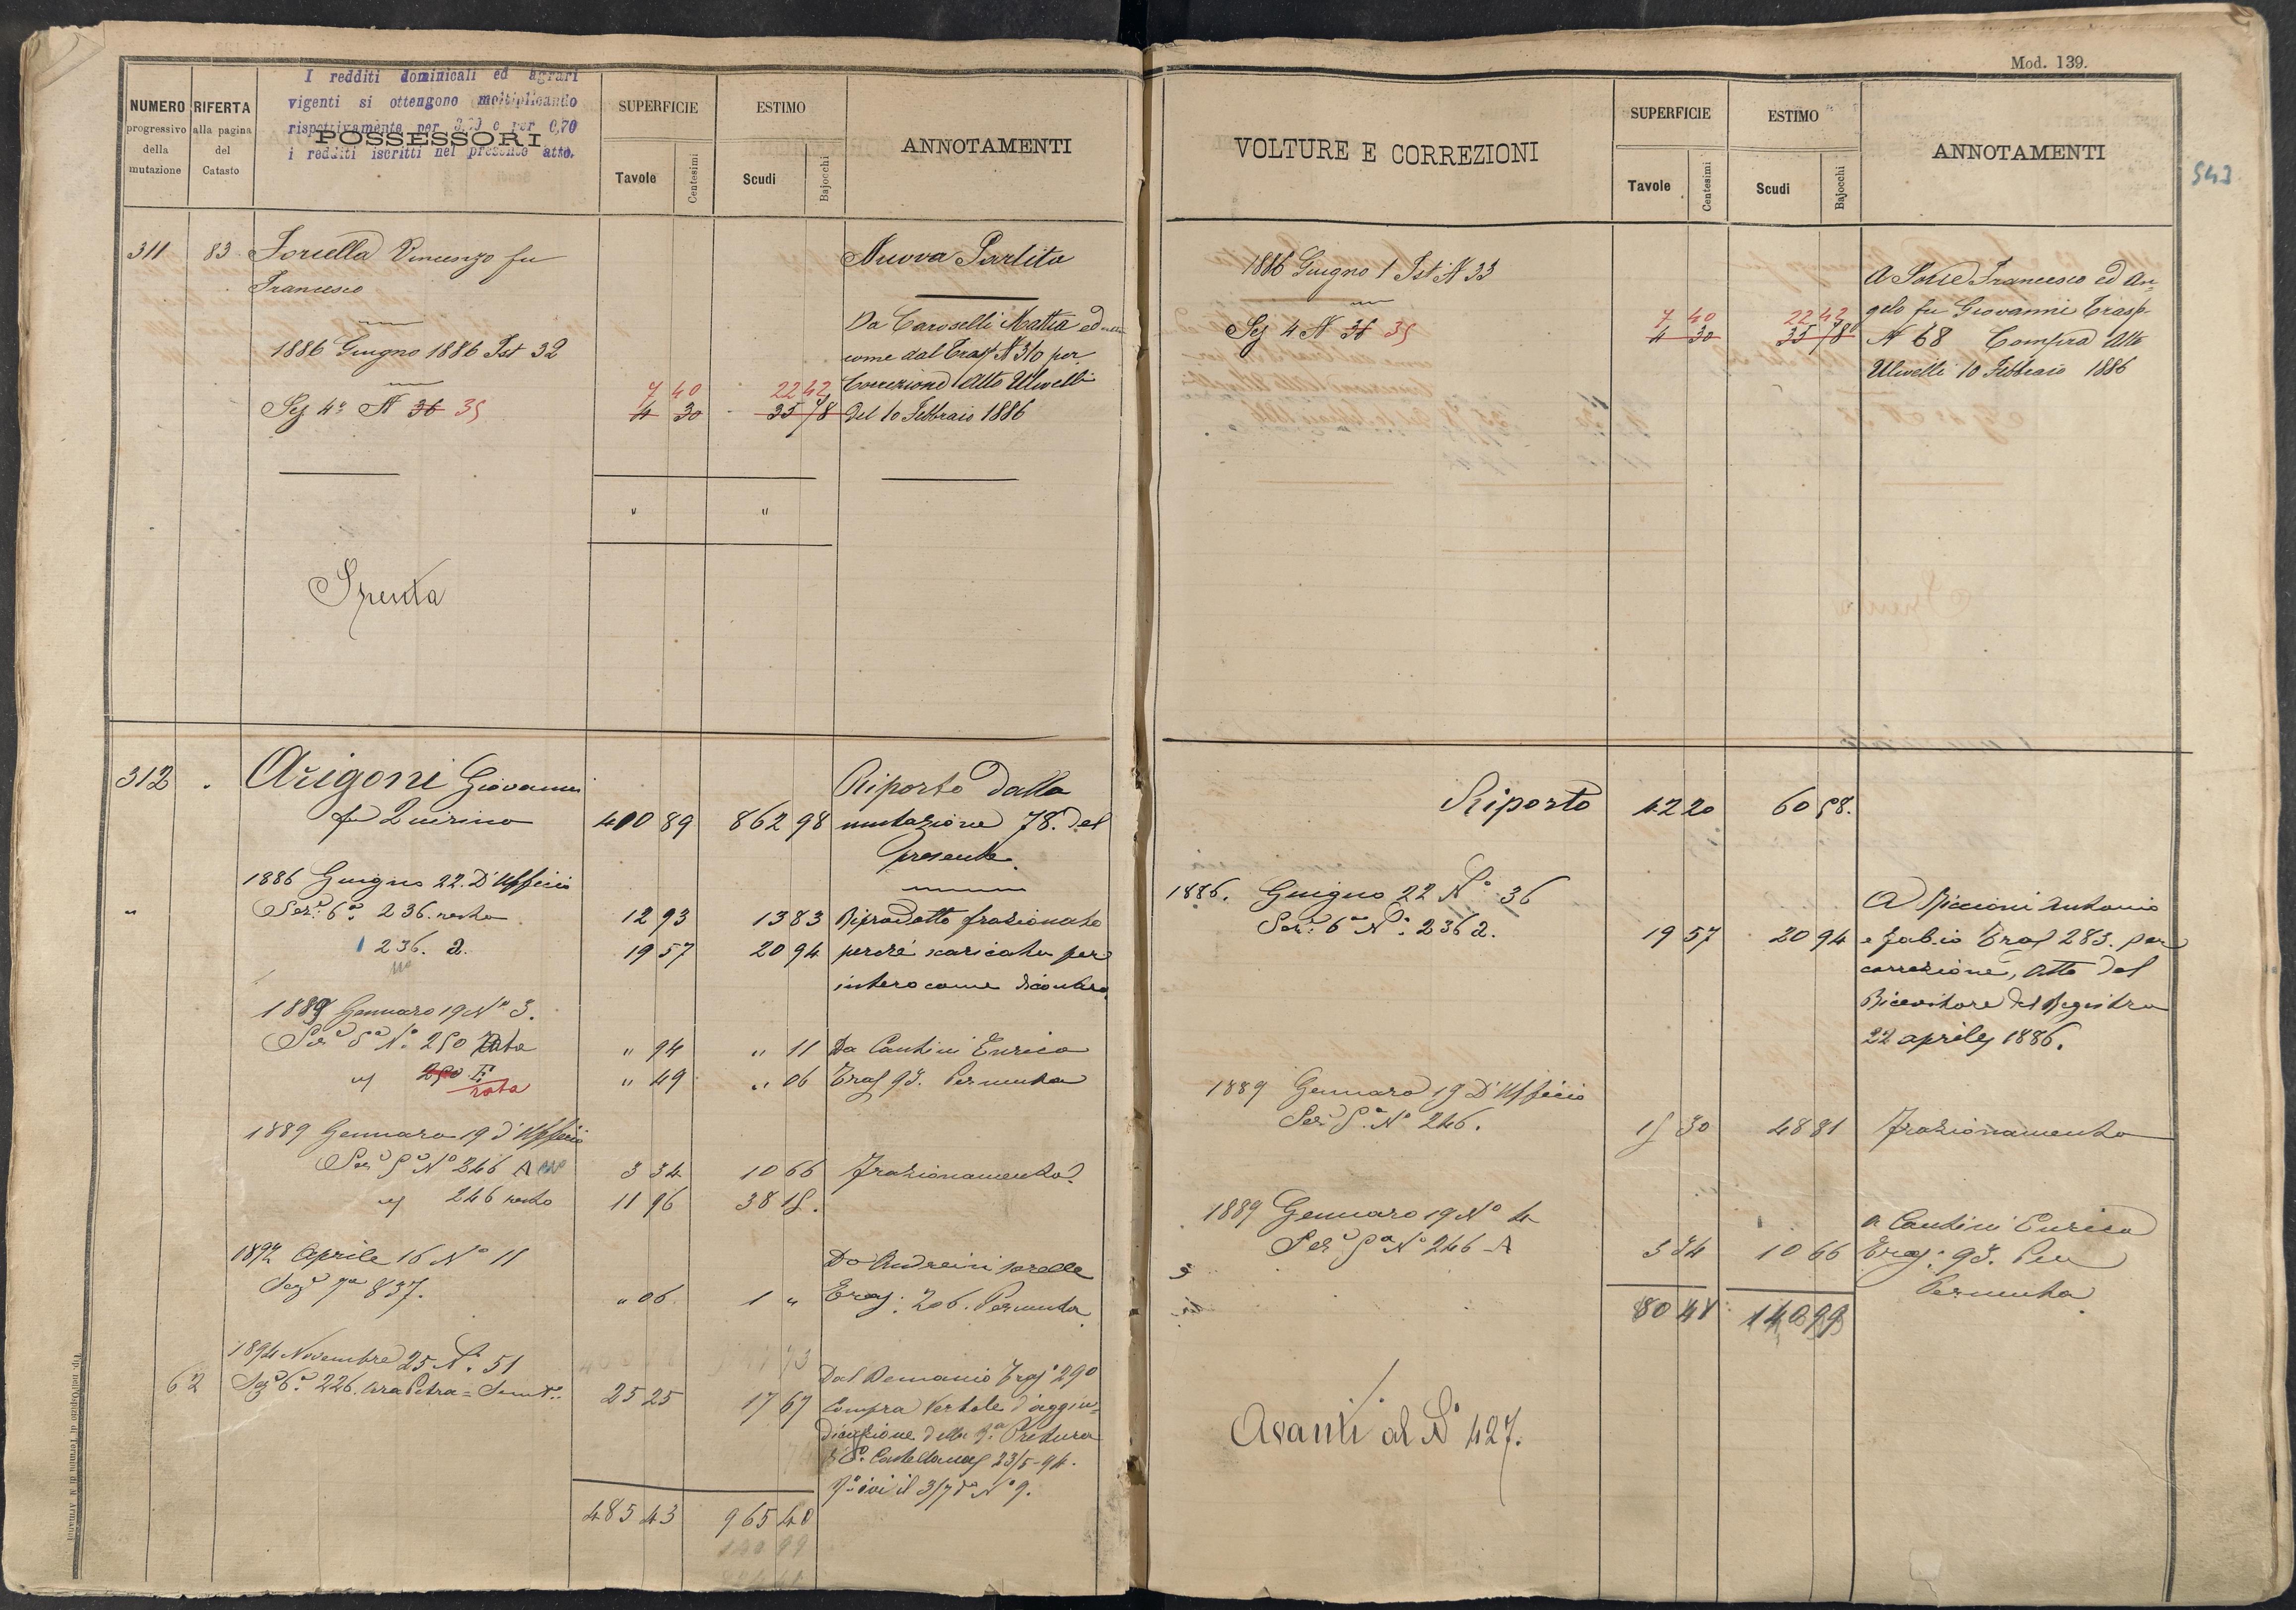 Mod. 139.
543
I redditi dominicali ed agrari
vigenti si ottengono moltiplicando
rispettivamente per e per 0,70
i redditi iscritti nel presente atto.
NUMERO progressivo della mutazione
RIFERTA alla pagina del Catasto
POSSESSORI
SUPERFICIE
Tavole Centesimi
ESTIMO
Scudi Bajocchi
ANNOTAMENTI
311 83 Vincenzo fu Nuova Partita
Francesco
Da Caroselli Mattia ed
1886 Giugno 1886 Ist 32 come dal Trasp N 310 per
7 40 22 42 Correzione Atto Ulivelli
Sez 4ª N 36 35 4 30 35 78 del 10 Febbraio 1886
" "
Spenta
312 Arigoni Giovanni Riporto dalla
fu Quirino 400 89 862 98 mutazione 78. del
presente.
1886 Giugno 22. D'Ufficio
" Sez. 6ª 236. resto 12 93 13 83 Riprodotto frazionato
236. a. 19 57 20 94 perché scaricato per
intero come di contro
1889 Gennaro 19 Nº 3.
Nº 250 rata " 94 " 11 Da Cantini Enrico
" 250 E rata " 49 " 06 Tras 93. Permuta
1889 Gennaro 19 d'Ufficio
Nº 246 A 3 34 10 66 Frazionamento
" 246 resto 11 96 38 15.
1892 Aprile 16 Nº 11 Da Andreini sorelle
Sezº 7ª 837. " 06 1 " Tras: 206. Permuta
1894 Novembre 25 Nº 51 Dal Demanio Tras 290
62 Sezº 6ª 226. Ara Petra = 25 25 17 67 Compra Verbale d'aggiu=
dicazione della Pretura
C. Castellana 23/5-94.
ivi il 3/7 Nº 9.
485 43 965 40
140 99
VOLTURE E CORREZIONI
SUPERFICIE
Tavole Centesimi
ESTIMO
Scudi Bajocchi
ANNOTAMENTI
1886 Giugno 1 Ist N 33 A Francesco ed An=
7 40 22 42 gelo fu Giovanni Trasp
Sez 4 N 36 35 4 30 35 78 N 68 Compra Atto
Ulivelli 10 Febbraio 1886
Riporto 42 20 60 58.
1886. Giugno 22 Nº 36 A Piccioni Antonio
Sez. 6ª Nº 236 a. 19 57 20 94 e Fabio Tras 283. per
correzione, Atto del
Ricevitore del Registro
22 aprile 1886.
1889 Gennaro 19 D'Ufficio
Nº 246. 15 30 48 81 Frazionamento
1889 Gennaro 19 Nº 4 A Cantini Enrico
Nº 246 A 3 34 10 66 Tras: 93. Per
Permuta
80 41 140 99
Avanti al Nº 427.
Tip. nell'Ospizio di Termini di N. Armanni